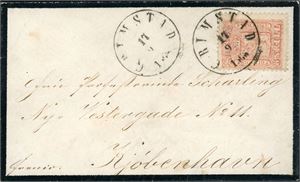 GRIMSTAD
17
9
GRIMSTAD
17
9
Scharling
Nye Vestergade No 11.
Kjöbenhavn
franco.